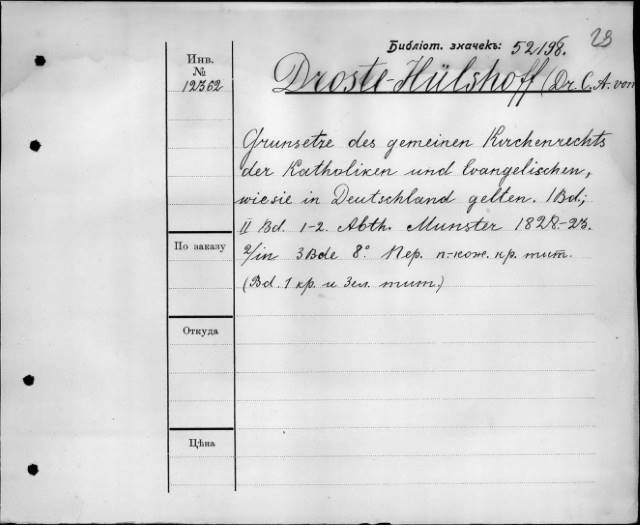 Библіот. значекъ: 52198.
23
Инв.
№
12362
Droste-Hülshoff (Dr. C. A. von
Grunsetze des gemeinen Kirchenrechts
der Katholiken und Evangelischen,
wiesie in Deutschland gelten. I Bd.;
II Bd. 1-2. Abth. Munster 1828-23.
2/in 3Bde 8° Пер. п.-кож. кр. тит.
(Bd. 1 кр. и 3 ел. тит.)
По заказу
Откуда
Цѣна